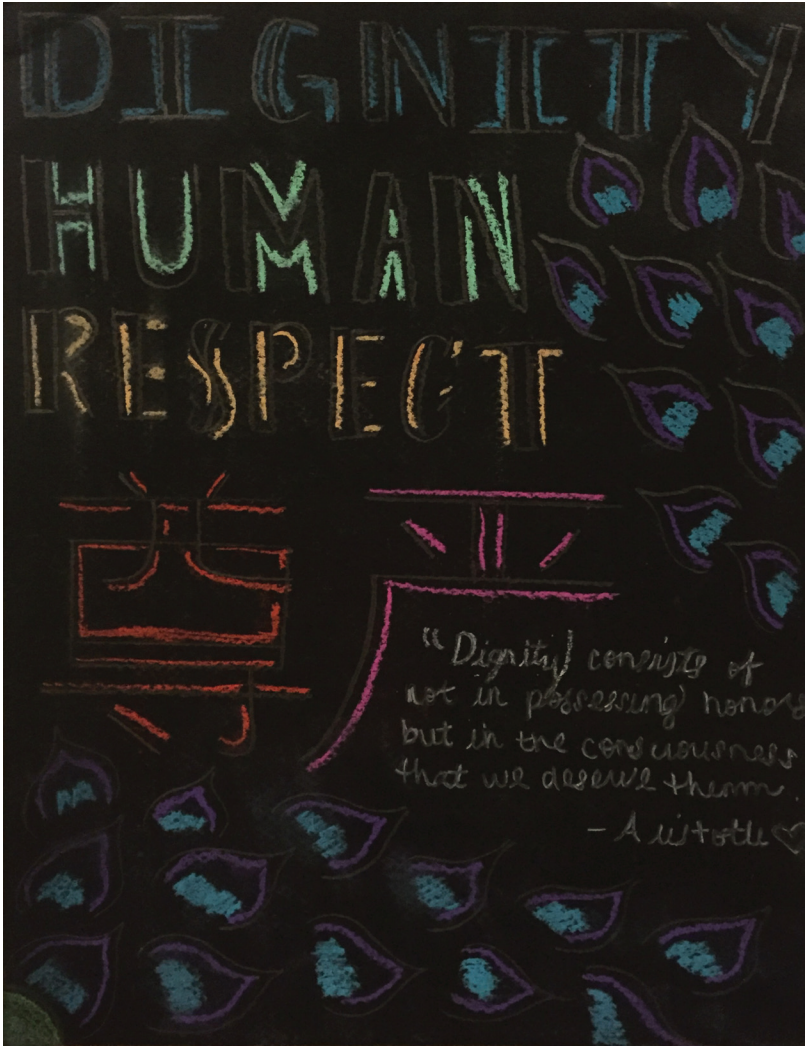 DIGNITY
HUMAN
RESPECT
尊严
"Dignity consists of
not in possessing honors
but in the consciousness
that we deserve them.
- Aristotle